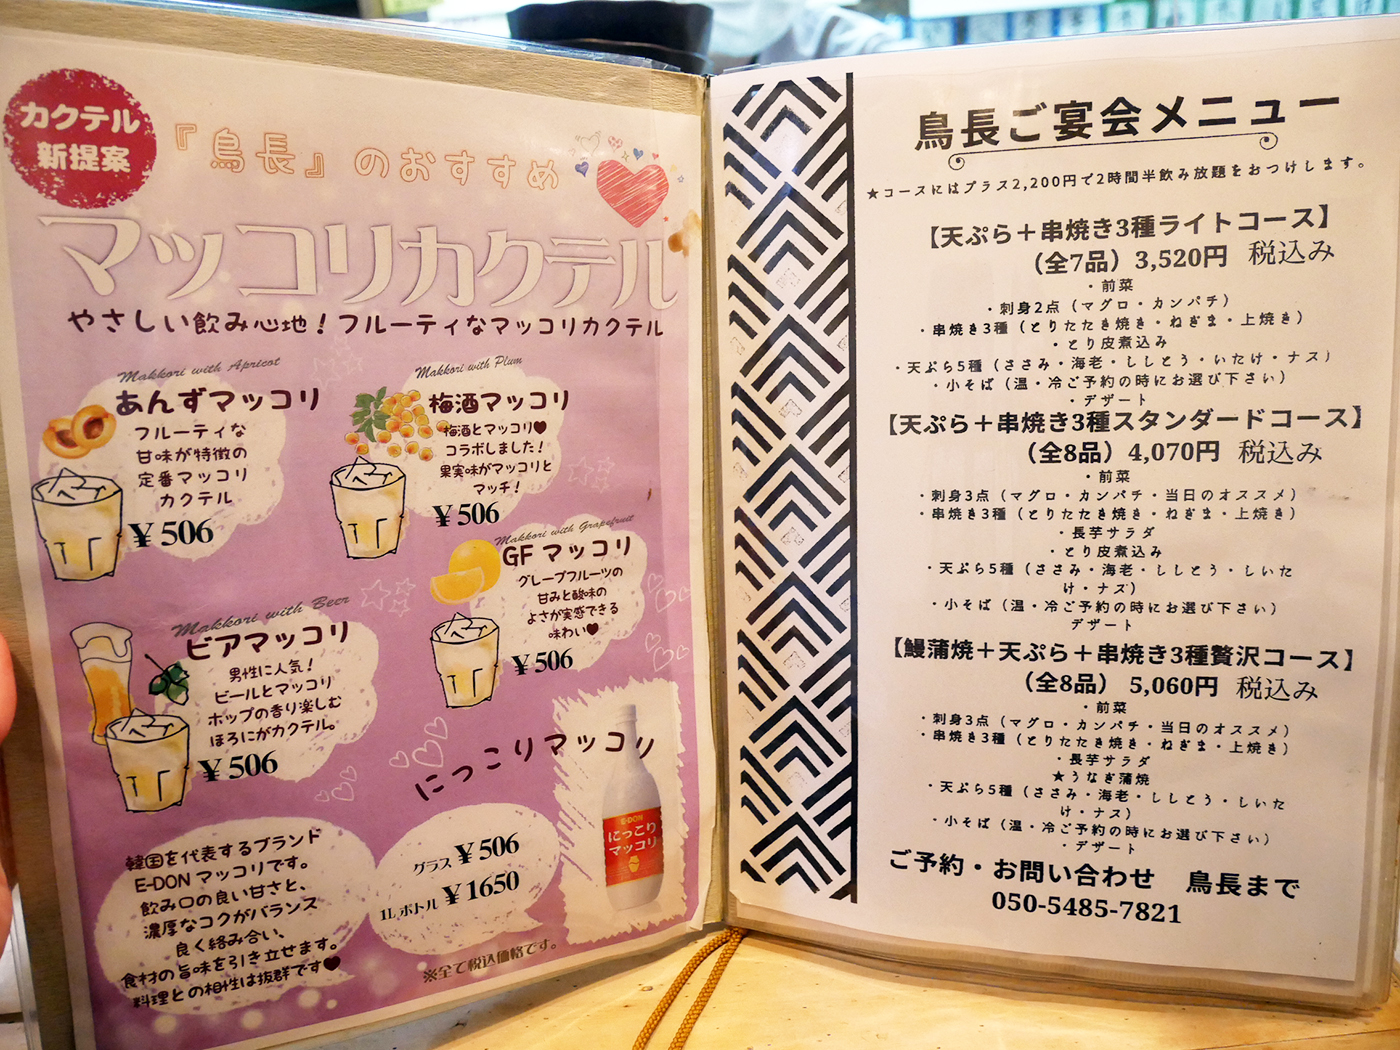 カクテル
新提案
『鳥長』のおすすめ
マッコリカクテル
やさしい飲み心地！フルーティなマッコリカクテル
Makkori with Apricot
あんずマッコリ
フルーティな
甘味が特徴の
定番マッコリ
カクテル
¥506
Makkori with Plum
梅酒マッコリ
梅酒とマッコリ♥
コラボしました！
果実味がマッコリと
マッチ！
¥506
Makkori with Grapefruit
GF マッコリ
グレープフルーツの
甘みと酸味の
よさが実感できる
味わい♥
¥506
Makkori with Beer
ビアマッコリ
男性に人気！
ビールとマッコリ
ホップの香り楽しむ
ほろにがカクテル。
¥506
にっこりマッコリ
E-DON
にっこり
マッコリ
グラス ¥506
1Lボトル ¥1650
韓国を代表するブランド
E-DON マッコリです。
飲み口の良い甘さと、
濃厚なコクがバランス
良く絡み合い、
食材の旨味を引き立せます。
料理との相性は抜群です♥
※全て税込価格です。
鳥長ご宴会メニュー
★コースにはプラス2,200円で2時間半飲み放題をおつけします。
【天ぷら＋串焼き3種ライトコース】
（全7品）3,520円 税込み
・前菜
・刺身2点（マグロ・カンパチ）
・串焼き3種（とりたたき焼き・ねぎま・上焼き）
・とり皮煮込み
・天ぷら5種（ささみ・海老・ししとう・いたけ・ナス）
・小そば（温・冷ご予約の時にお選び下さい）
・デザート
【天ぷら＋串焼き3種スタンダードコース】
（全8品）4,070円 税込み
・前菜
・刺身3点（マグロ・カンパチ・当日のオススメ）
・串焼き3種（とりたたき焼き・ねぎま・上焼き）
・長芋サラダ
・とり皮煮込み
・天ぷら5種（ささみ・海老・ししとう・しいた
け・ナス）
・小そば（温・冷ご予約の時にお選び下さい）
デザート
【鰻蒲焼＋天ぷら＋串焼き3種贅沢コース】
（全8品） 5,060円 税込み
・前菜
・刺身3点（マグロ・カンパチ・当日のオススメ）
・串焼き3種（とりたたき焼き・ねぎま・上焼き）
・長芋サラダ
★うなぎ蒲焼
・天ぷら5種（ささみ・海老・ししとう・しいた
け・ナス）
・小そば（温・冷ご予約の時にお選び下さい）
・デザート
ご予約・お問い合わせ 鳥長まで
050-5485-7821